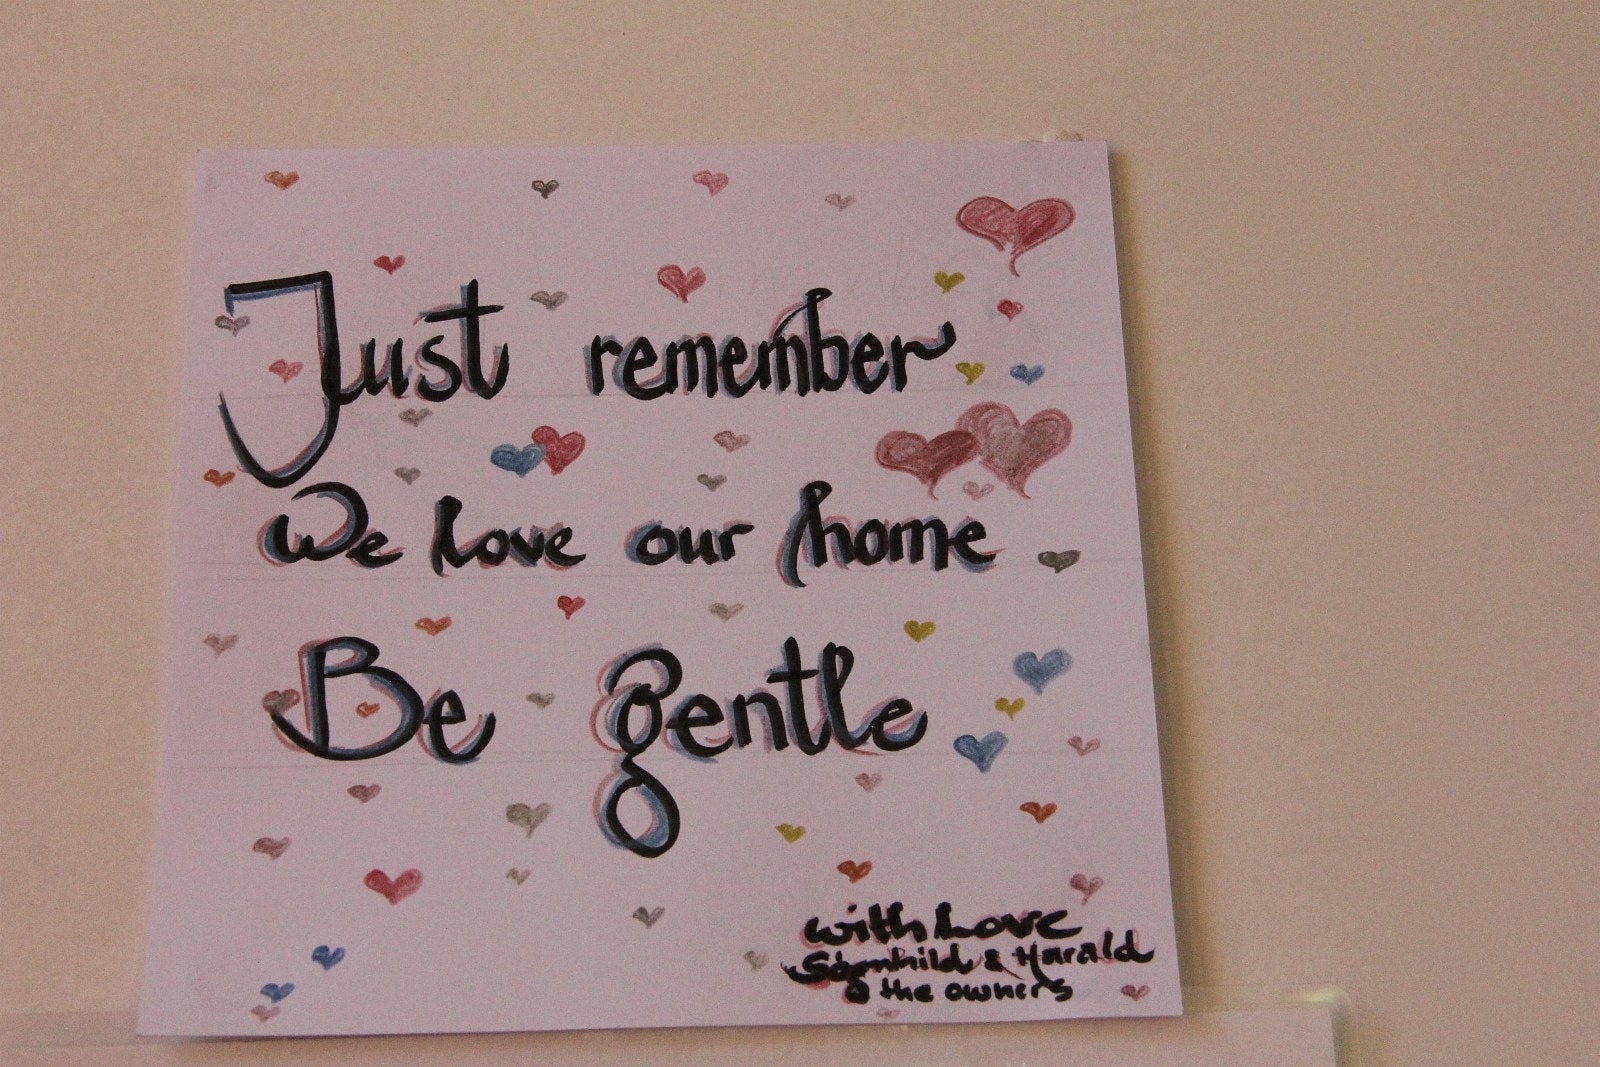 Just remember
We love our home
Be gentle
with Love
& Harald
the owners